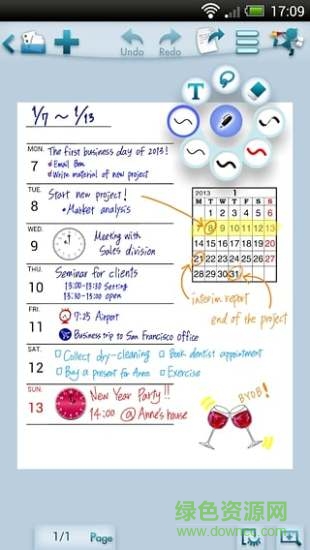 17:09
Undo
Redo
T
1/7 ~ 1/13
MON
7
The first business day of 2013!
※Email Ben
※Write material of new project
TUE
8
Start new project!
※Market analysis
WED
9
Meeting with
Sales division
THU
10
Seminar for clients
13:00-13:30 Setting
13:30-15:30 open
FRI
11
7:25 Airport
Business trip to San Francisco office
SAT
12
Collect dry-cleaning
Book dentist appointment
Buy a present for Anne
Exercise
SUN
13
New Year Party!!
14:00 @ Anne's house
2013 1
M T W T F S S
1 2 3 4 5 6
9 10 11 12 13
14 15 16 17 18 19 20
21 22 23 24 25 26 27
28 29 30 31
interim report
end of the project
BYOB!
1/1 Page
绿色资源网
www.downcc.com